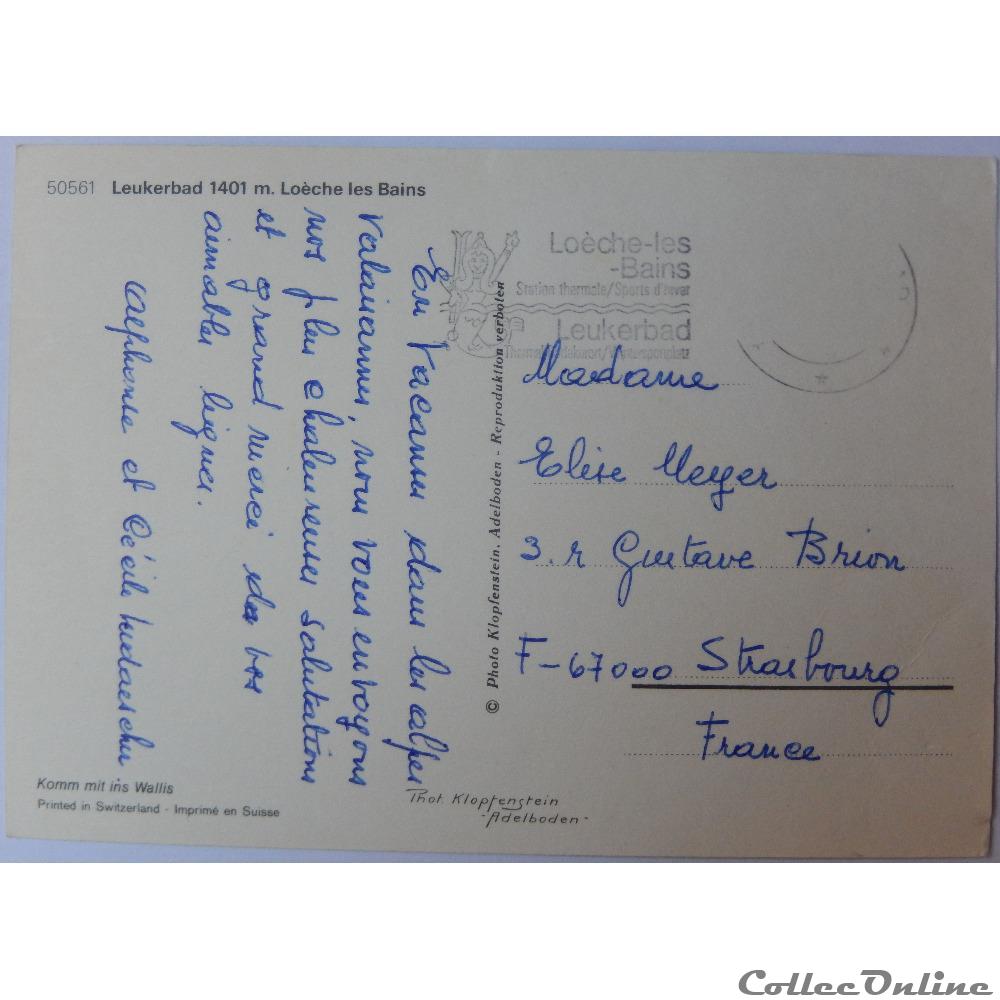 50561 Leukerbad 1401 m. Loèche les Bains
En Vacances dans les alpes
Valaisannes, nous vous envoyons
nos plus chaleureuses salutations
et grand merci de vos
aimables lignes.
Alphonse et Cécile
Komm mit ins Wallis
Printed in Switzerland - Imprimé en Suisse
© Photo Klopfenstein, Adelboden - Reproduktion verboten
Phot. Klopfenstein
-Adelboden-
Loèche-les
-Bains
Station thermale/Sports d'hiver
Leukerbad
Madame
Elise Meyer
3. r Gustave Brion
F-67000 Strasbourg
France
CollecOnline